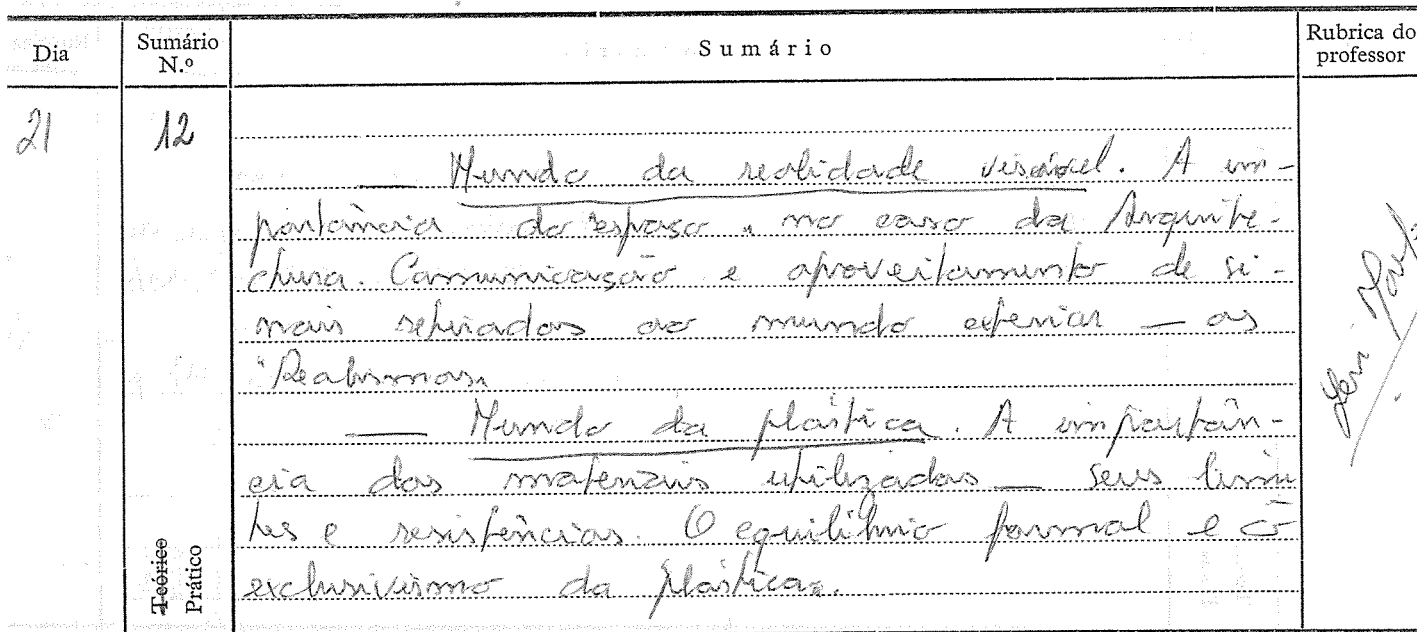 Dia
Sumário N.º
Sumário
Rubrica do professor
21
12
— Mundo da realidade visível. A im-
portância do espaço, no caso da Arquite-
chura. Comunicação e aproveitamento de si-
nais retirados ao mundo exterior — os
"Realismos"
— Mundo da plástica. A importân-
cia dos materiais utilizados — seus limi
tes e resistências. O equilíbrio formal e o
exclusivismo da plástica.
Teórico
Prático